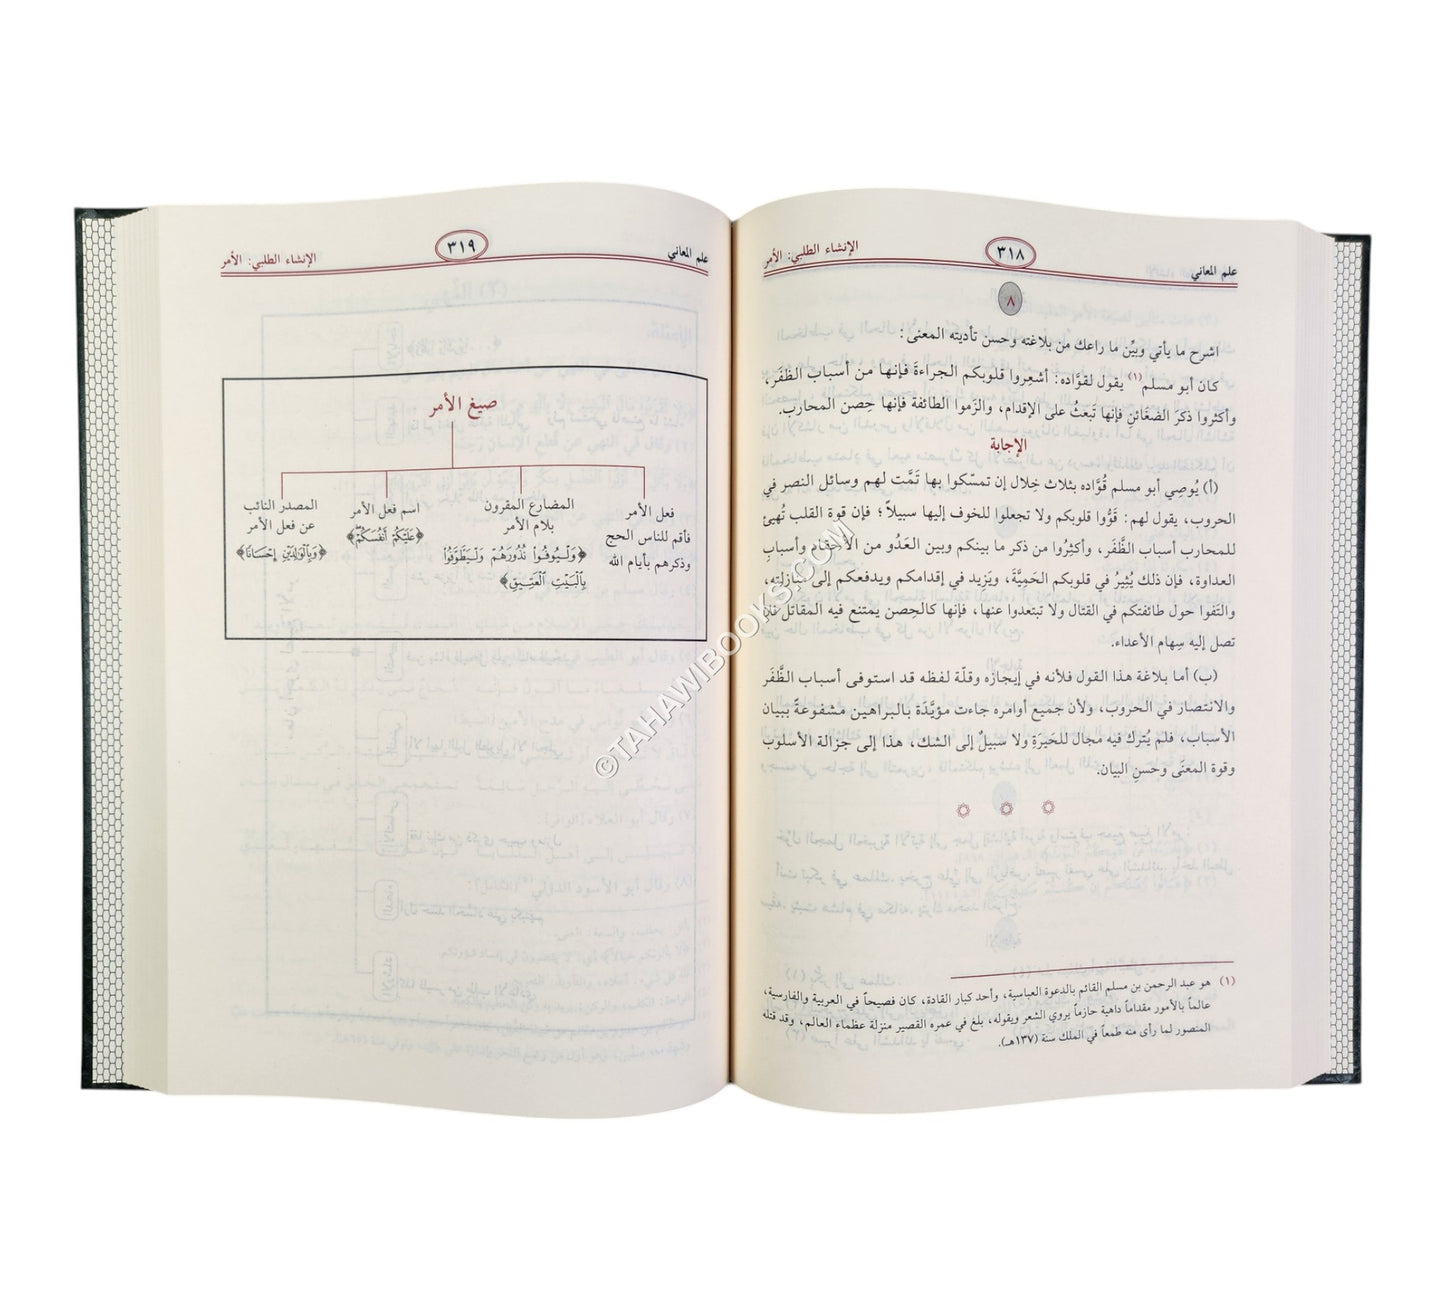 علم المعاني
٣١٨
الإنشاء الطلبي: الأمر
٨
اشرح ما يأتي وبيِّن ما راعك من بلاغته وحسن تأديته المعنى:
كان أبو مسلم(١) يقول لقوَّاده: أشعِروا قلوبكم الجراءةَ فإنها من أسباب الظفَر،
وأكثروا ذكر الضغَائنِ فإنها تَبعثُ على الإقدام، والزَموا الطائفة فإنها حِصن المحارب.
الإجابة
(أ) يُوصِي أبو مسلم قُوَّاده بثلاث خِلال إن تمسّكوا بها تَمَّت لهم وسائل النصر في
الحروب، يقول لهم: قَوُّوا قلوبكم ولا تجعلوا للخوف إليها سبيلاً؛ فإن قوة القلب تُهيئ
للمحارب أسباب الظَّفَر، وأكثِرُوا من ذكر ما بينكم وبين العَدُو من الأحقاد وأسبابِ
العداوة، فإن ذلك يُثِيرُ في قلوبكم الحَمِيَّةَ، ويَزِيد في إقدامكم ويدفعكم إلى منازلته،
والتَفوا حول طائفتكم في القتال ولا تبتعدوا عنها، فإنها كالحِصن يمتنع فيه المقاتل فلا
تصل إليه سِهام الأعداء.
(ب) أما بلاغة هذا القول فلأنه في إيجازه وقلّة لفظه قد استوفى أسباب الظَّفَر
والانتصار في الحروب، ولأن جميع أوامره جاءت مؤيَّدَة بالبراهين مشفوعةً ببيان
الأسباب، فلم يُترك فيه مجال للحَيرَةِ ولا سبيلٌ إلى الشك، هذا إلى جزالة الأسلوب
وقوة المعنَى وحسنِ البيان.
(١) هو عبد الرحمن بن مسلم القائم بالدعوة العباسية، وأحد كبار القادة، كان فصيحاً في العربية والفارسية،
عالماً بالأمور مقداماً داهية حازماً يروي الشعر ويقوله، بلغ في عمره القصير منزلة عظماء العالم، وقد قتله
المنصور لما رأى منه طمعاً في الملك سنة (١٣٧هـ).
علم المعاني
٣١٩
الإنشاء الطلبي: الأمر
صيغ الأمر
فعل الأمر
فأقم للناس الحج
وذكرهم بأيام الله
المضارع المقرون
بلام الأمر
﴿وَلْيُوفُوا۟ نُذُورَهُمْ وَلْيَطَّوَّفُوا۟
بِٱلْبَيْتِ ٱلْعَتِيقِ﴾
اسم فعل الأمر
﴿عَلَيْكُمْ أَنفُسَكُمْ﴾
المصدر النائب
عن فعل الأمر
﴿وَبِٱلْوَٰلِدَيْنِ إِحْسَانًا﴾
©TAHAWIBOOKS.COM